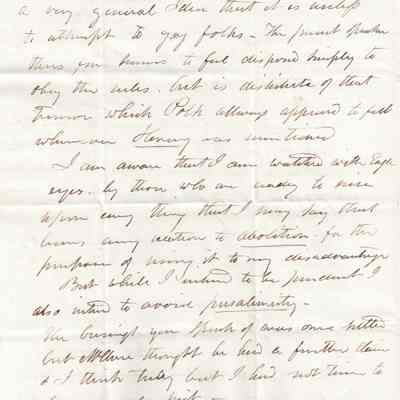 a very general idea that it is useless
to attempt to gag folks – The present Speaker
thus far seems to feel disposed simply to
obey the rules. but is destitute of that
Terror which Polk allways appeared to feel
whenever Slavery was mentioned
I am aware that I am watched with Eagle
eyes. by those who are ready to seize
upon every thing that I may say that
bears any relation to abolition. for the
purpose of using it to my disadvantage
But while I intend to be prudent. I
also intend to avoid pusalinimity –
The business you speak of was once settled
but McClure thought he had a further claim
& I think truly but I had not time to